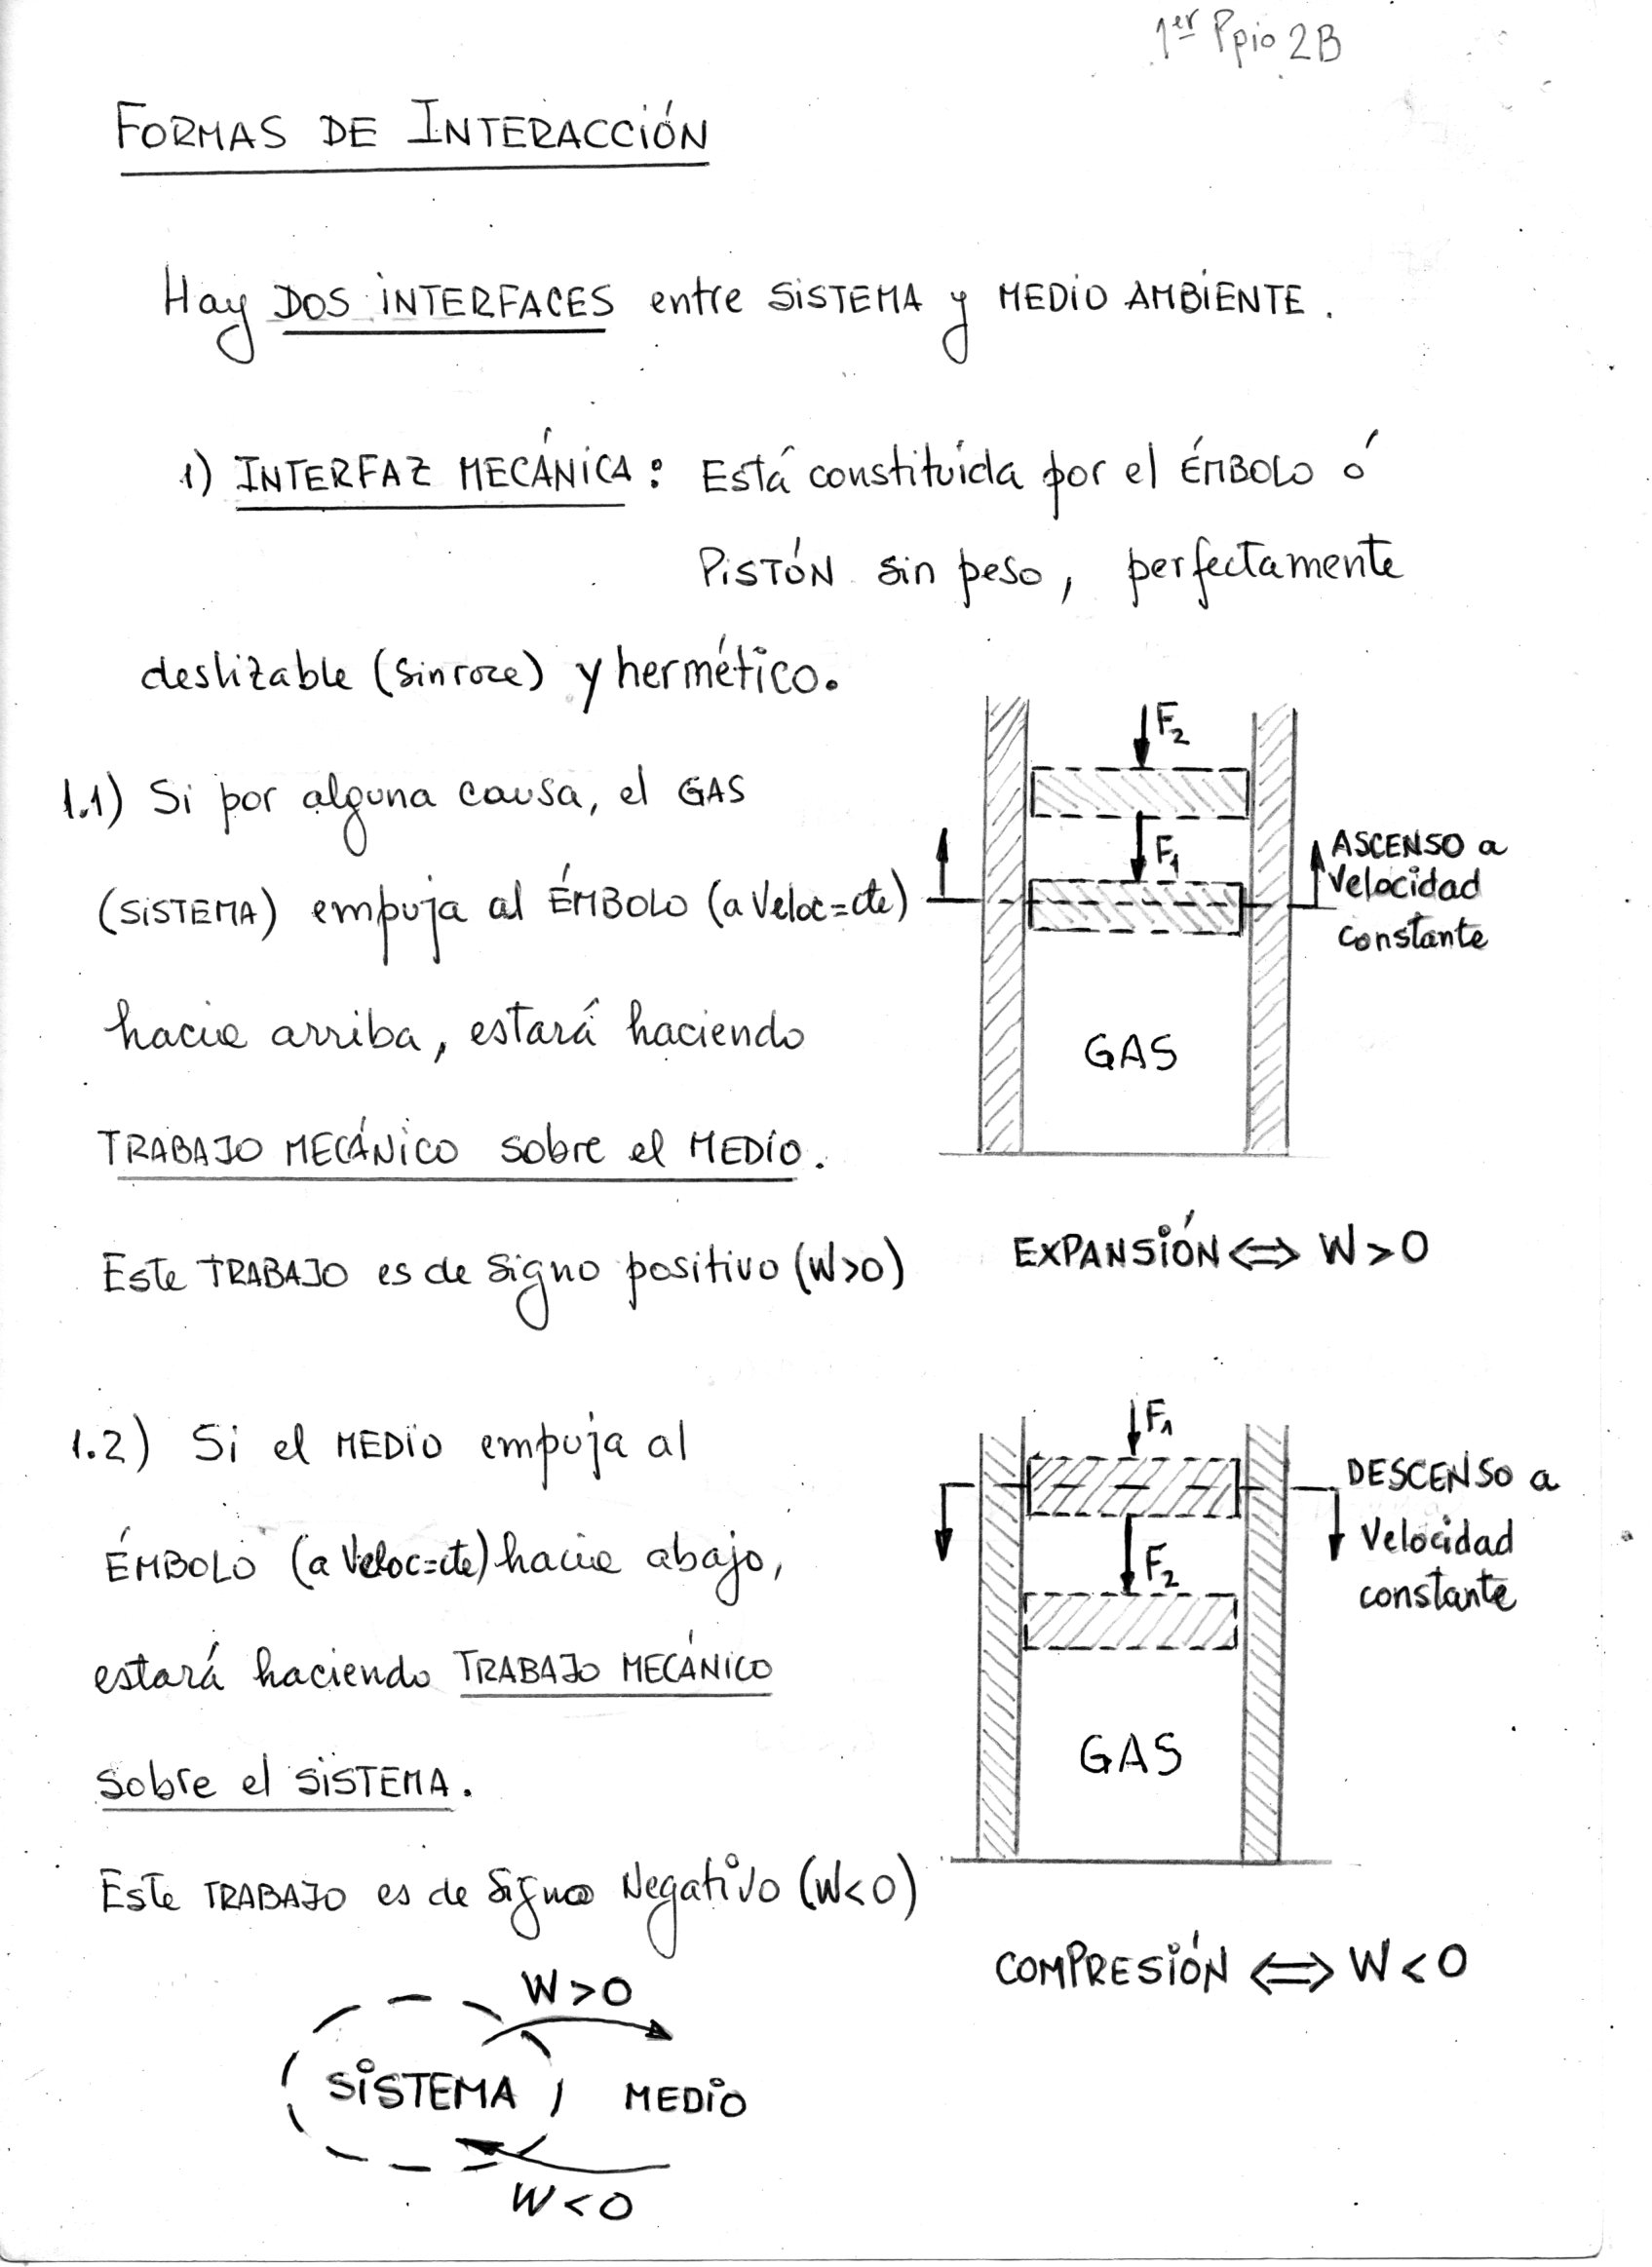 1er Ppio 2B
FORMAS DE INTERACCIÓN
Hay DOS INTERFACES entre SISTEMA y MEDIO AMBIENTE.
1) INTERFAZ MECÁNICA: Está constituída por el ÉMBOLO ó
PISTÓN sin peso, perfectamente
deslizable (sin roce) y hermético.
1.1) Si por alguna causa, el GAS
(SISTEMA) empuja al ÉMBOLO (a Veloc=cte)
hacia arriba, estará haciendo
TRABAJO MECÁNICO sobre el MEDIO.
Este TRABAJO es de signo positivo (W>0)
F2
F1
ASCENSO a
Velocidad
constante
GAS
EXPANSIÓN ⟺ W>0
1.2) Si el MEDIO empuja al
ÉMBOLO (a Veloc=cte) hacia abajo,
estará haciendo TRABAJO MECÁNICO
sobre el SISTEMA.
Este TRABAJO es de Signo Negativo (W<0)
F1
DESCENSO a
Velocidad
constante
F2
GAS
COMPRESIÓN ⟺ W<0
W>0
SISTEMA MEDIO
W<0